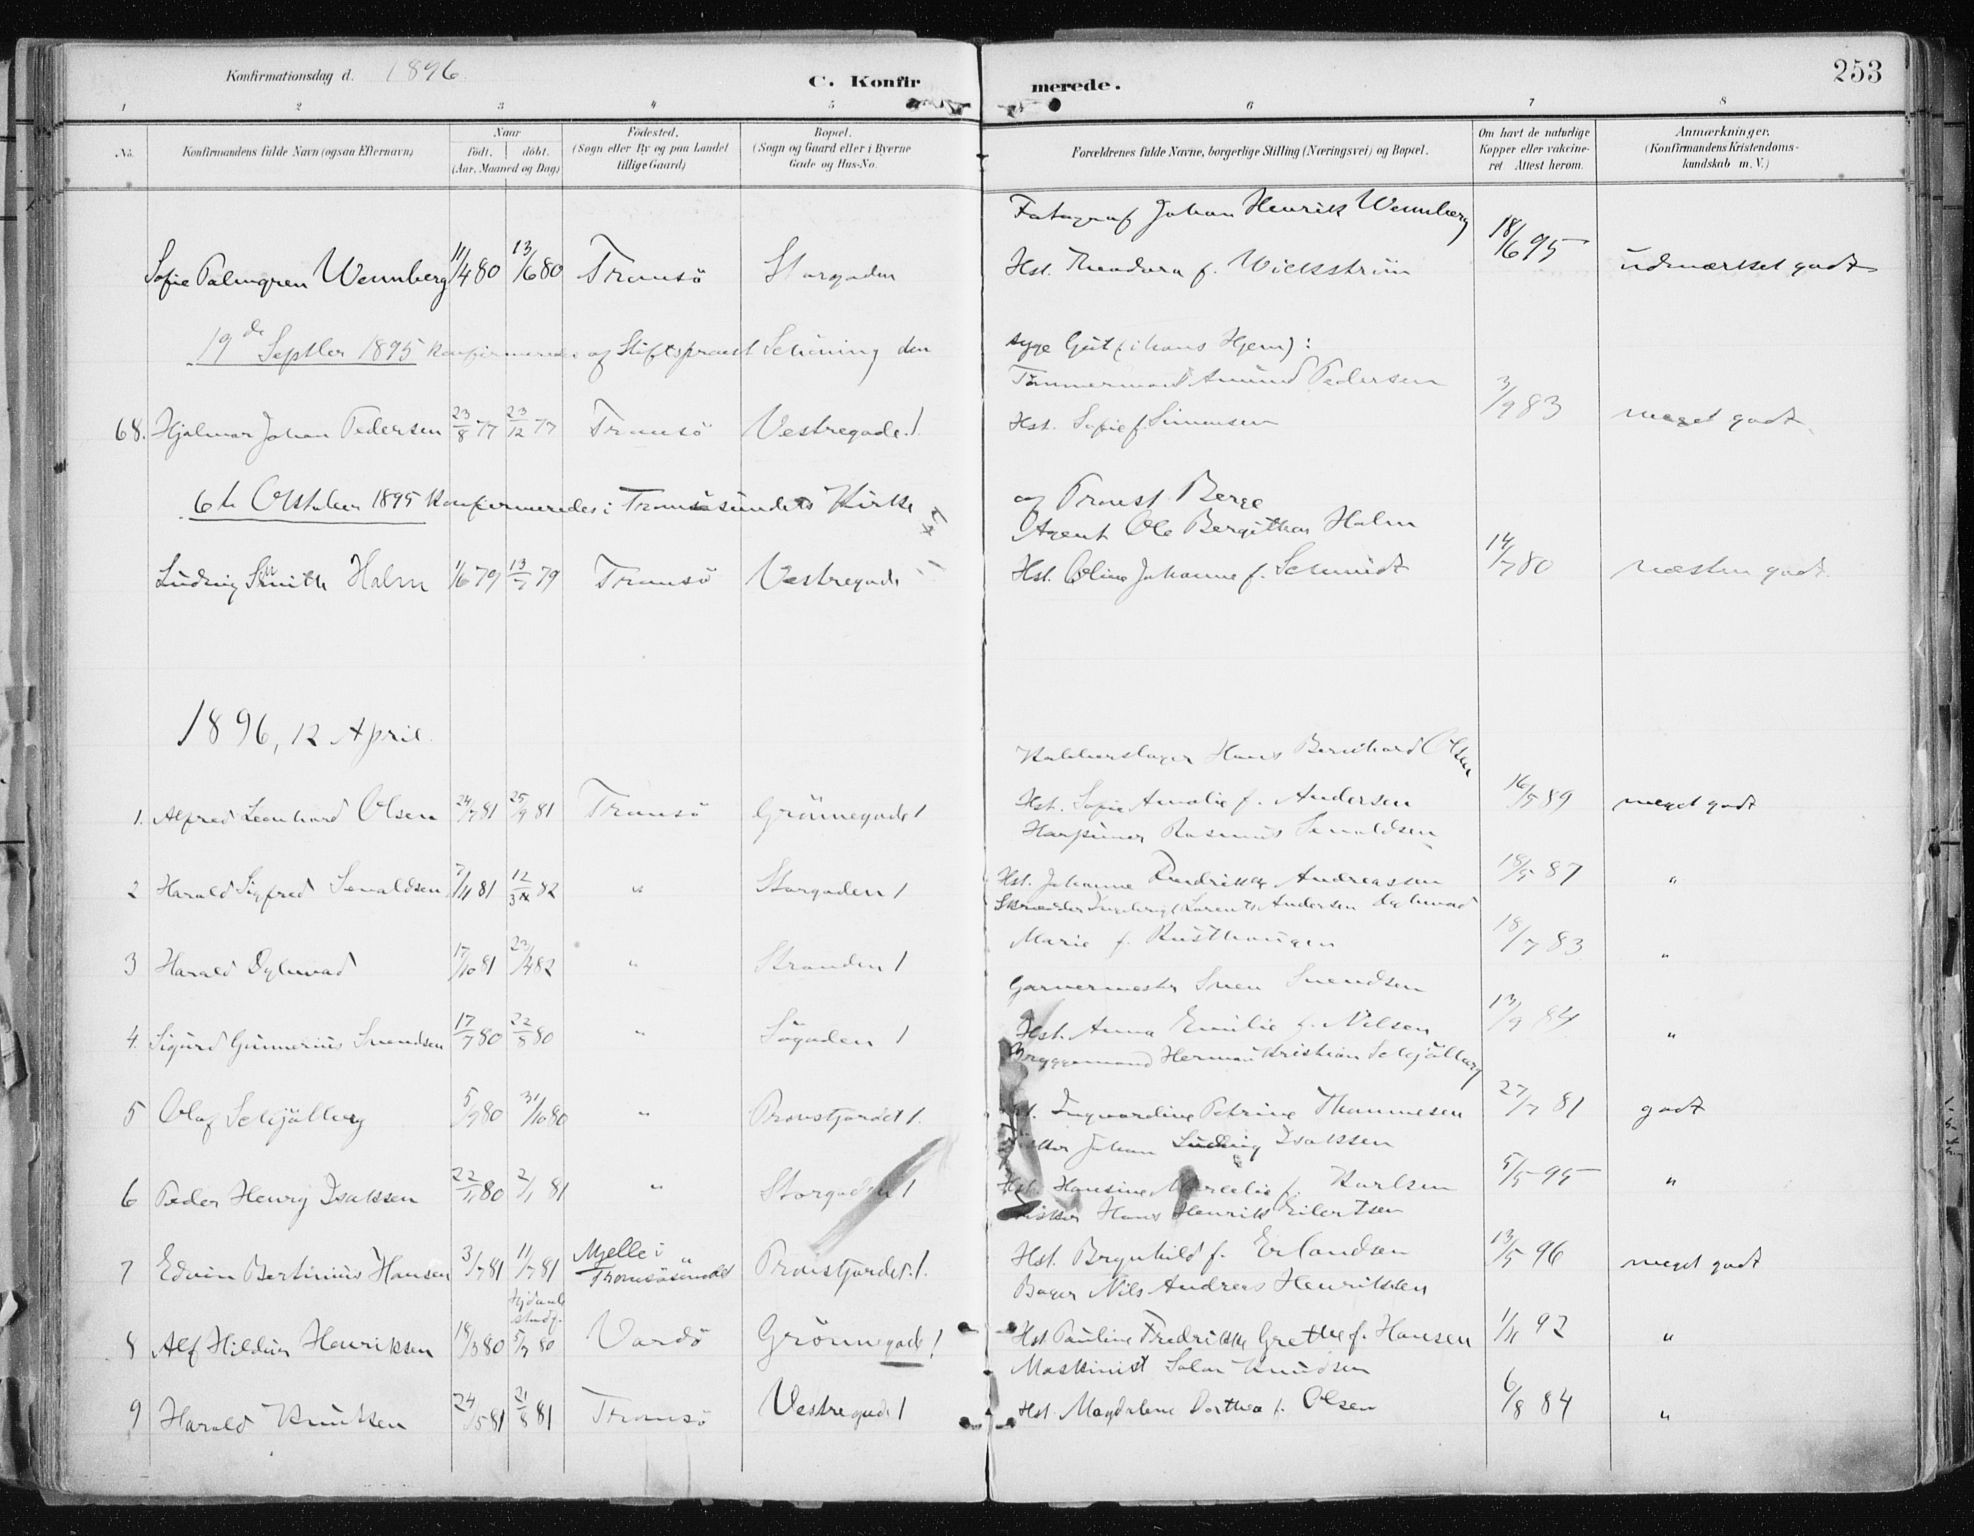 Konfirmationsdag d. 1896.
C. Konfirmerede.
253
1 2 3 4 5 6 7 8
No.
Konfirmandens fulde Navn (ogsaa Efternavn)
Naar
født. døbt.
(Aar, Maaned og Dag)
Fødested.
(Sogn eller By og paa Landet
tillige Gaard)
Bopæl.
(Sogn og Gaard eller i Byerne
Gade og Hus-No.
Forældrenes fulde Navne, borgerlige Stilling (Næringsvei) og Bopæl.
Om havt de naturlige
Kopper eller vakcine-
ret Attest herom.
Anmærkninger.
(Konfirmandens Kristendoms-
kundskab m. V.)
Fotograf Johan Henrik Wennberg
Sofie Palmgren Wennberg 11/4 80 13/6 80 Tromsö Storgaden Hst. Theodora f. Wickström 18/6 95 udmærket godt
19de Septbr 1895 konfirmeredes af Stiftsprovst Schöning den syge Gut (i hans Hjem):
Tömmermand Amund Pedersen
68. Hjalmar Johan Pedersen 23/8 77 23/12 77 Tromsö Vestregade / Hst. Sofie f. Simonsen 3/9 83 meget godt.
6te Oktober 1895 konfirmeredes i Tromsösundets Kirke af Provst Berge
Agent Ole Bergithon Holm
Ludvig Smith Holm 1/6 79 13/7 79 Tromsö Vestregade Hst. Oline Johanne f. Schmidt 14/7 80 næsten godt.
1896, 12 April.
Kobberslager Hans Bernhard Olsen
1. Alfred Leonhard Olsen 24/7 81 25/9 81 Tromsö Grönnegade / Hst. Sofie Amalie f. Andersen 16/5 89 meget godt
Harpuner Rasmus
2 Harald Sigfred 7/11 81 12/3 82 " Storgaden / Hst. Johanne Andreassen 18/5 87 "
Skrædder Andersen
3 Harald 17/10 81 23/4 82 " Stranden / Marie f. 18/7 83 "
Garvermester Sven Svendsen
4. Sigurd Gunnerius Svendsen 17/7 80 22/8 80 " Sögaden / Hst. Anna Emilie f. Nilsen 13/9 84 "
Bryggemand Herman Kristian Schjölberg
5 Olaf Schjölberg 5/9 80 31/10 80 " Provstjordet /. Hst. Ingvardine Petrine Thommesen 27/7 81 godt
Fisker Johan Ludvig Isaksen
6 Peder Henry Isaksen 22/11 80 2/1 81 " Storgaden / Hst. Hansine Marcelie f. Karlsen 5/5 95 "
Fisker Hans Henrik Eilertsen
7 Edvin Bertinius Hansen 3/7 81 11/7 81 Mjelle i Tromsösundet Provstjordet /. Hst. Brynhild f. Erlandsen 13/5 96 meget godt
Bager Nils Andreas Henriksen
8 Alf Hildur Henriksen 18/3 80 5/7 80 Vardö Grönnegade / Hst. Pauline Fredrikke Grethe f. Hansen 1/11 92 "
Maskinist Knudsen
9 Harald Knutsen 24/5 81 21/8 81 Tromsö Vestregade / Hst. Magdalene Dorthea f. Olsen 6/8 84 "